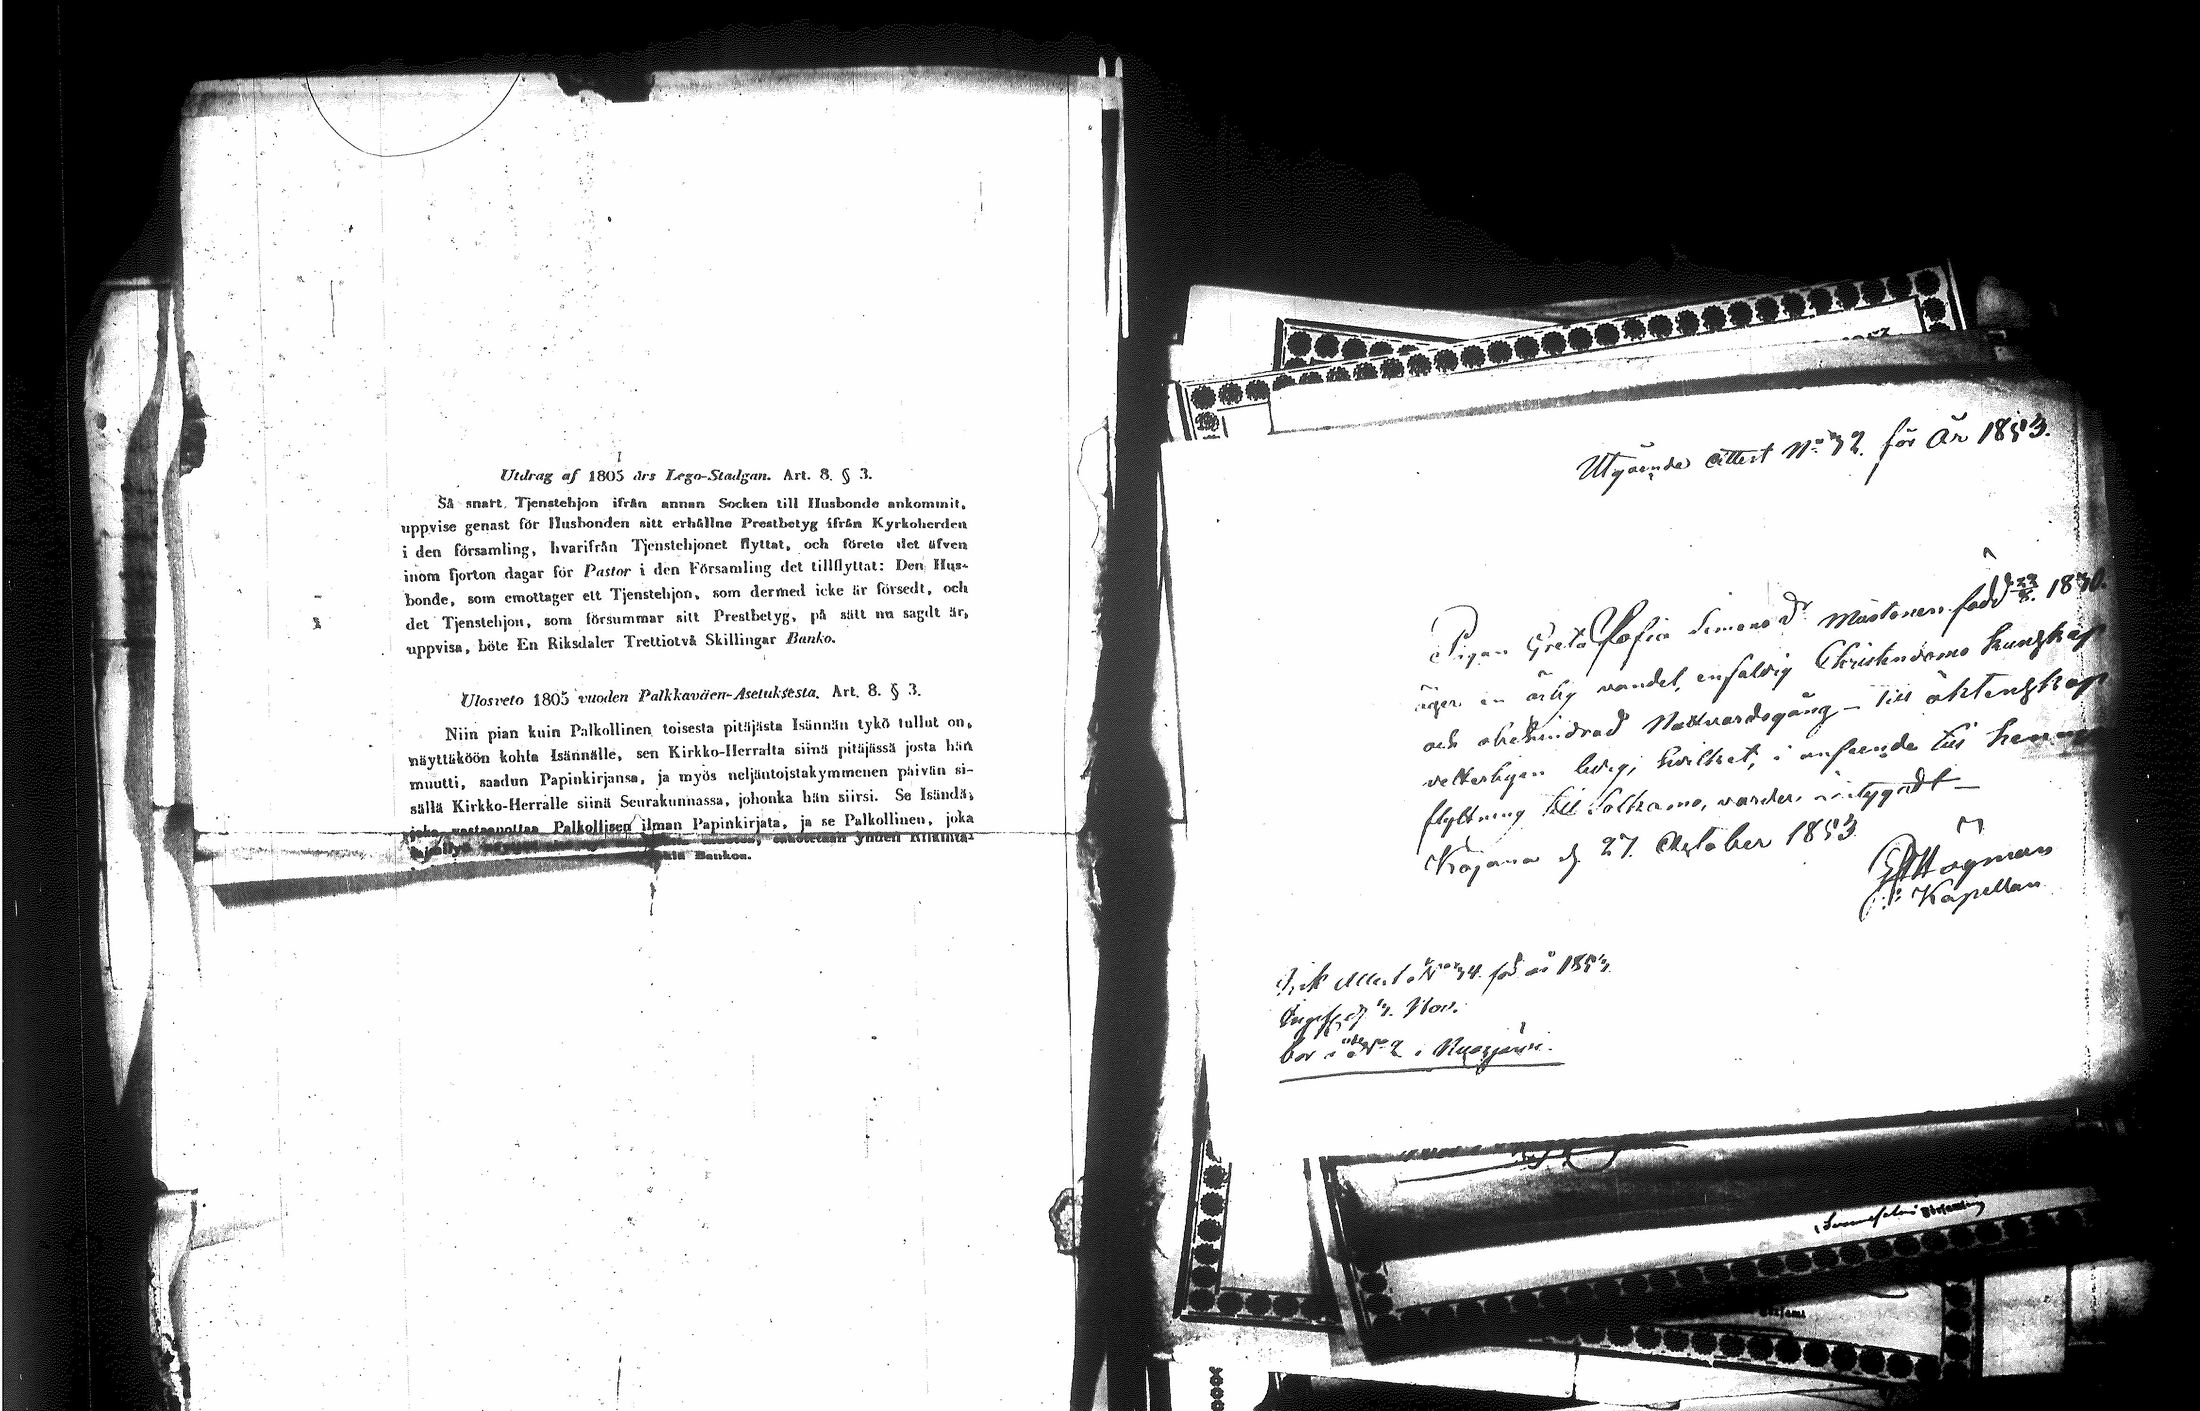 Utdrag af 1805 års Lego-Stadgan. Art. 8. § 3.
Så snart Tjenstehjon ifrån annan Socken till Husbonde ankommit,
uppvise genast för Husbonden sitt erhållne Prestbetyg ifrån Kyrkoherden
i den församling, hvarifrån Tjenstehjonet flyttat, och förete det äfven
inom fjorton dagar för Pastor i den Församling det tillflyttat: Den Hus-
bonde, som emottager ett Tjenstehjon, som dermed icke är försedt, och
det Tjenstehjon, som försummar sitt Prestbetyg, på sätt nu sagdt är,
uppvisa, böte En Riksdaler Trettiotvå Skillingar Banko.
Ulosveto 1805 vuoden Palkkaväen-Asetuksesta. Art. 8. § 3.
Niin pian kuin Palkollinen toisesta pitäjästä Isännän tykö tullut on,
näyttäköön kohta Isännälle, sen Kirkko-Herralta siinä pitäjässä josta hän
muutti, saadun Papinkirjansa, ja myös neljäntoistakymmenen päivän si-
sällä Kirkko-Herralle siinä Seurakunnassa, johonka hän siirsi. Se Isändä,
joka vastaanottaa Palkollisen ilman Papinkirjata, ja se Palkollinen, joka
yhden Riksinta-
Bankoa.
Utgående Attest No 32. för År 1853.
Pigan Greta Sofia Simonsdr Mustonen född 1830.
äger en ärlig vandel, enfaldig Christendoms kunskap
och obehindrad Nattvardsgång – till äktenskap
veterligen ledig; hvilket, i anseende till hennes
flyttning till Sotkamo, varder intygadt –
Kajana d 27. October 1853
Högman
Kapellan
No 34. för år 1853.
Nov.
bor i No 2 i
Församling